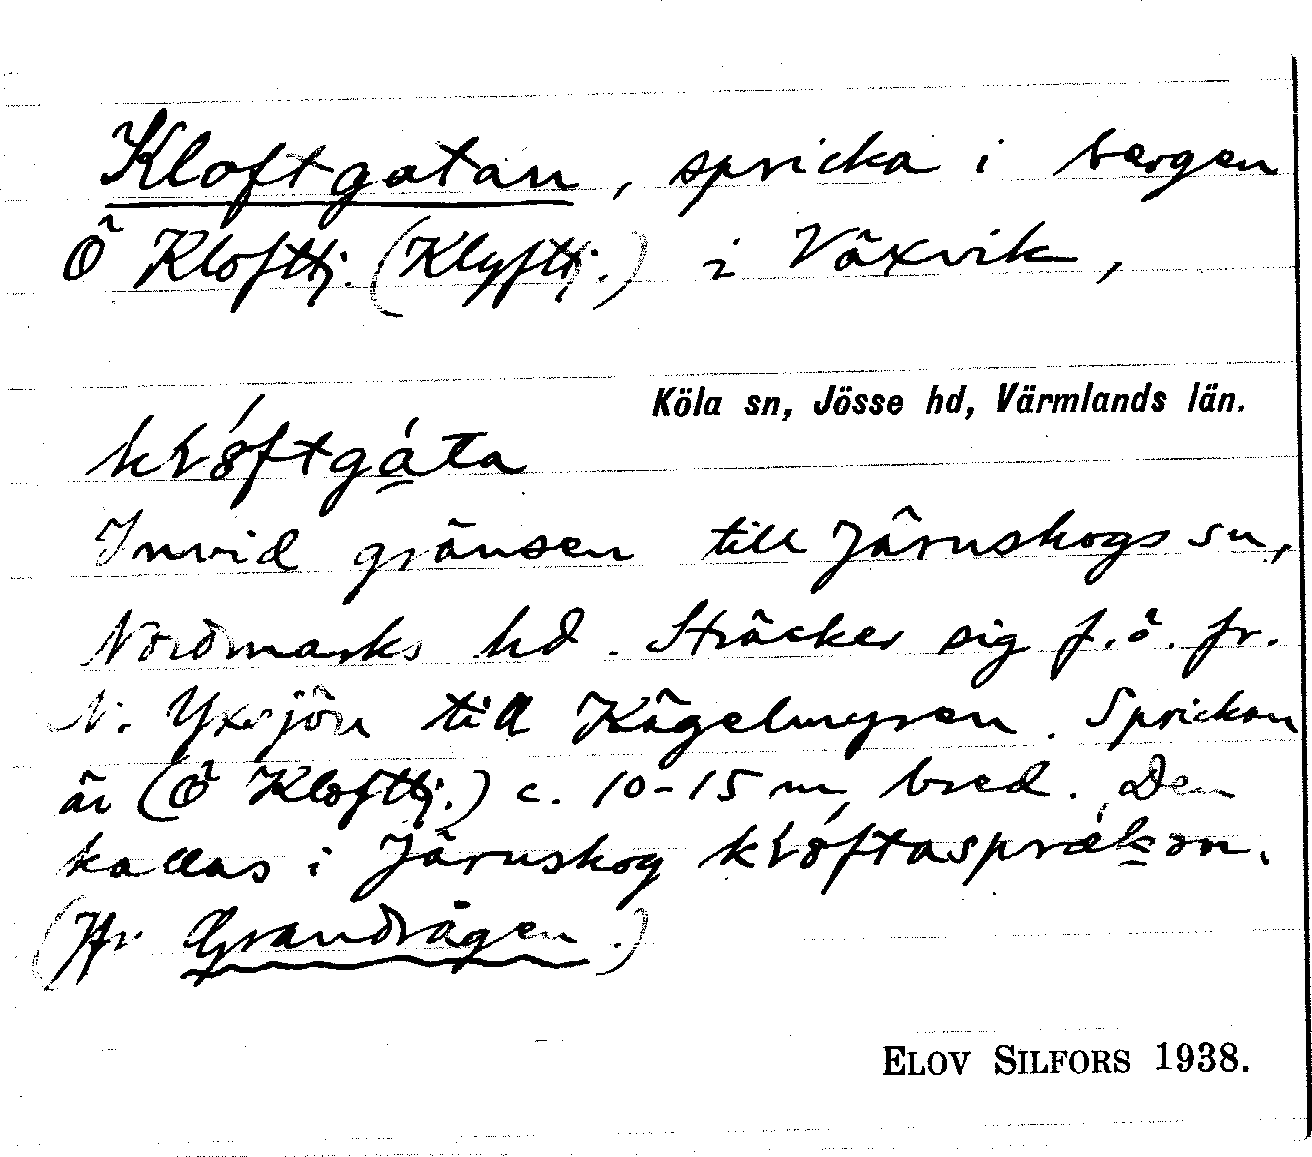 Kloftgatan, spricka i bergen
Ö Klofttj. (Klyfttj.) i Växvik,
Köla sn, Jösse hd, Värmlands län.
Invid gränsen till Järnskogs sn,
Nordmarks hd. Sträcker sig f.ö. fr.
N. Yxesjön till Kägelmyren. Sprickan
är (Ö Klofttj.) c. 10-15 m, bred. Den
kallas i Järnskog
(Jfr Grandvägen.)
ELOV SILFORS 1938.